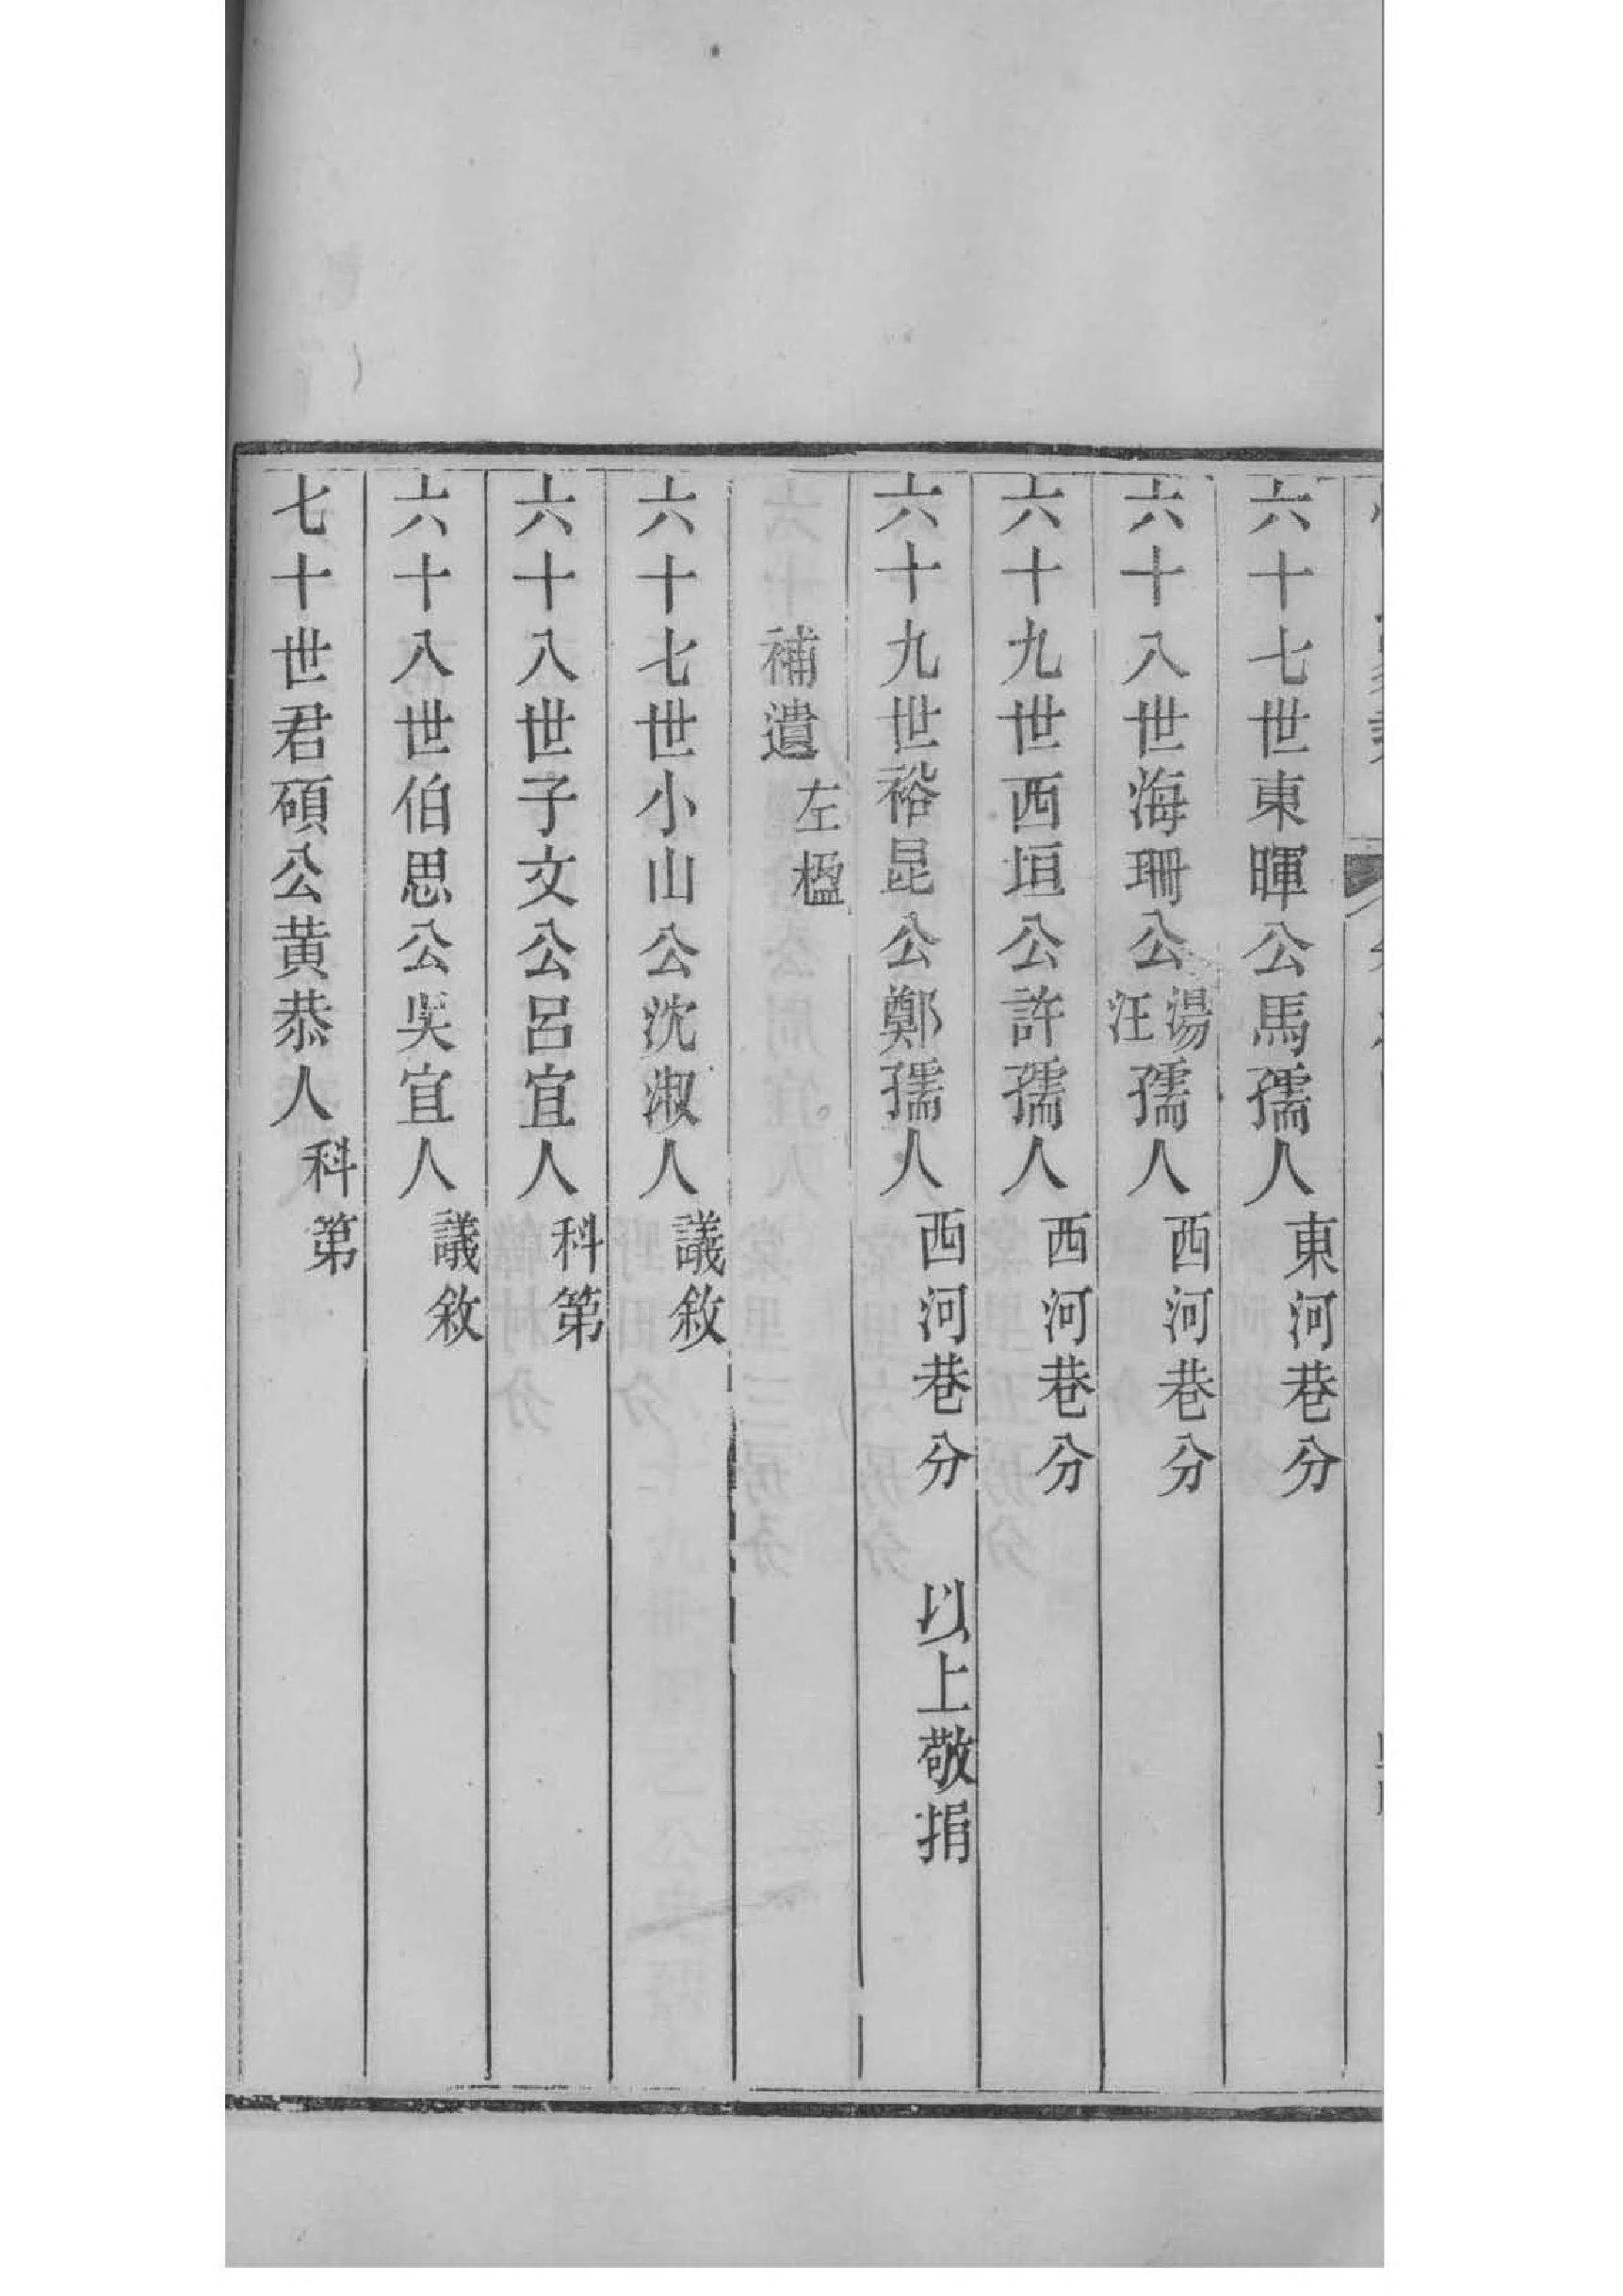 六十七世東暉公馬孺人東河巷分
六十八世海珊公湯汪孺人西河巷分
六十九世西垣公許孺人西河巷分
六十九世裕昆公鄭孺人西河巷分 以上敬捐
補遺左楹
六十七世小山公沈淑人議敘
六十八世子文公呂宜人科第
六十八世伯思公吳宜人議敘
七十世君碩公黃恭人科第